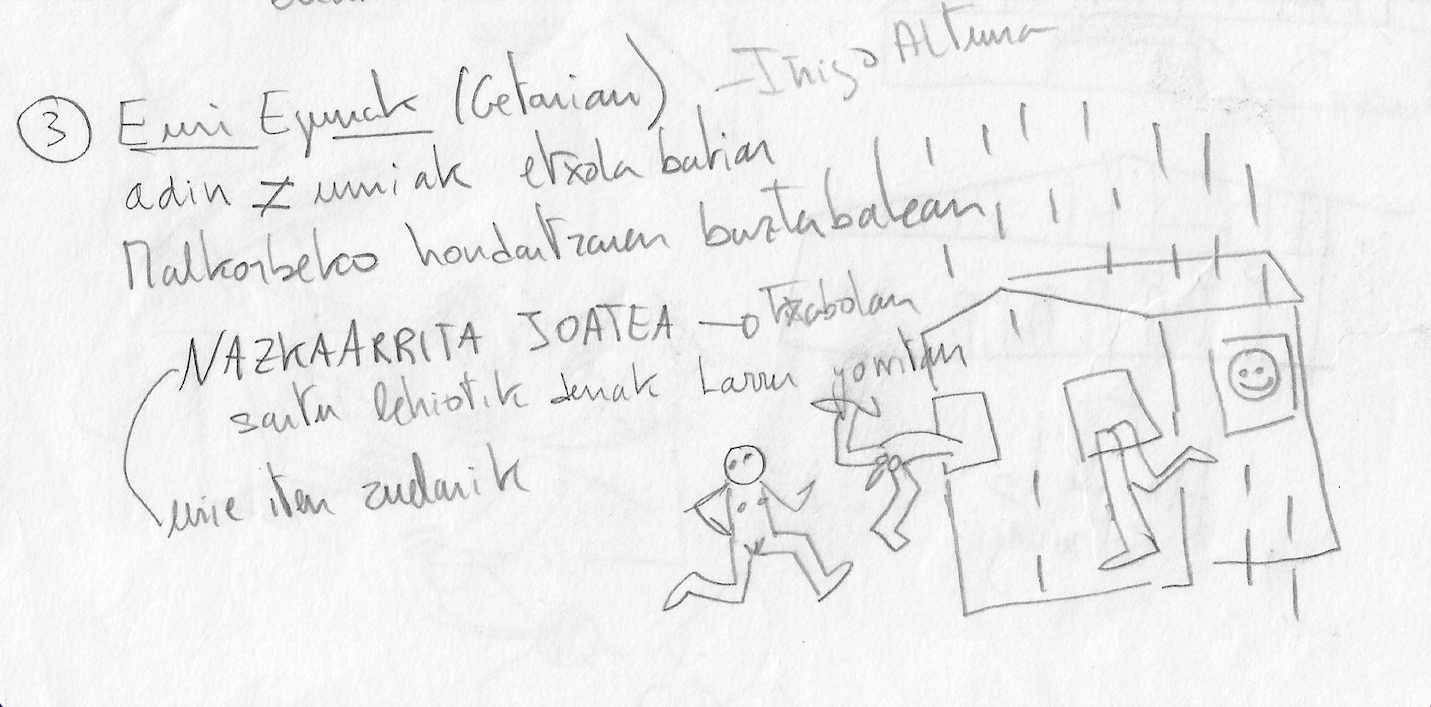 ③ Euri Egunak (Getarian) - Iñigo Altuna
adin ≠ umiak etxola batian
Malkorbeko hondartzaren buztabalean
NAZKA ARRITA JOATEA —o txabolan
sartu lehiotik denak Larru gorritan
umie iten zudanik